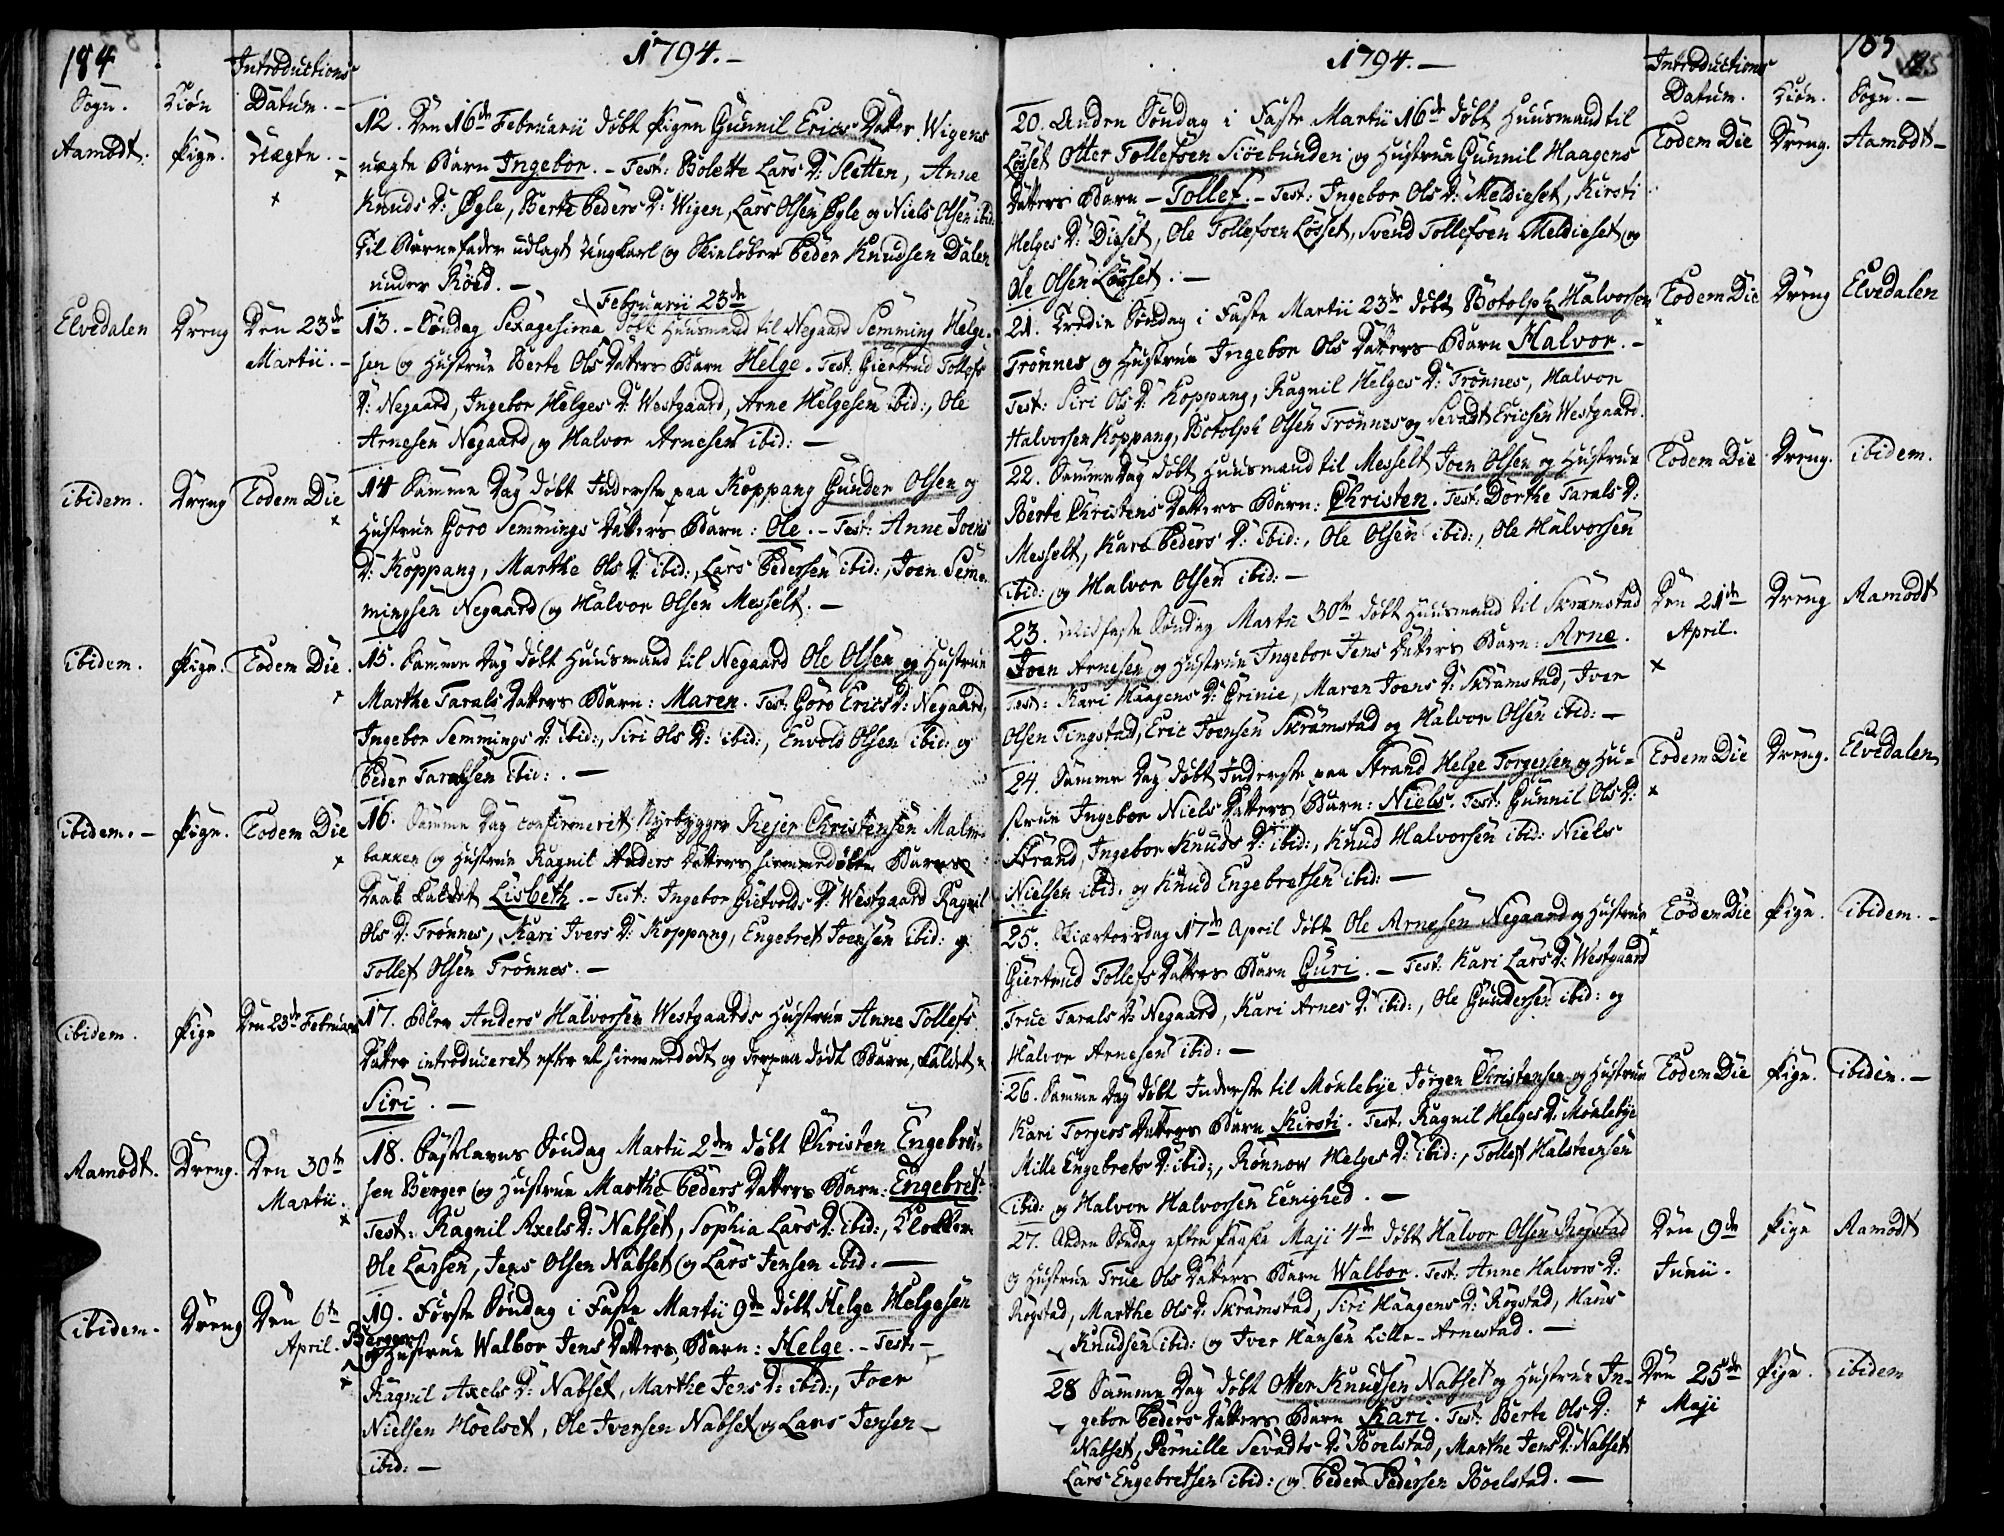 184
1794.-
Introductions
Sogn. Kiön Datum.-
Aamodt. Pige. Uægte.-
12. Den 16de Februarii døbt Pigen Gunnil Erics Datter Wigens
uægte Barn Ingebor.- Test: Bolette Lars D: Sletten, Anne
Knuds D: Ygle, Berte Peders D: Wigen, Lars Olsen Ygle og Niels Olsen ibid:
Til Barnefader udlagt Ungkarl og Skieløber Peder Knudsen Dalen
under Röed.-
Elvedalen Dreng Den 23de Martii.-
Februarii 23de
13.- Söndag Sexagesima døbt Huusmand til Negaard Semming Helge-
sen og Hustrue Berte Ols Datters Barn Helge. Test: Giertrud Tollefs
D: Negaard, Ingebor Helges D: Westgaard, Arne Helgesen ibid:, Ole
Arnesen Negaard, og Halvor Arnesen ibid:-
ibidem. Dreng Eodem Die
14 Samme Dag døbt Inderste paa Koppang Gunder Olsen og
Hustrue Goro Semmings Datters Barn: Ole.- Test: Anne Joens
D: Koppang, Marthe Ols D: ibid:, Lars Pedersen ibid:, Joen Sem-
mingsen Negaard og Halvor Olsen Messelt.-
ibidem. Pige. Eodem Die
15. Samme Dag døbt Huusmand til Negaard Ole Olsen og Hustrue
Marthe Tarals Datters Barn: Maren. Test: Goro Erics D: Negaard,
Ingebor Semmings D: ibid:, Siri Ols D: ibid:, Envold Olsen ibid: og
Peder Taralsen ibid:.-
ibidem.- Pige. Eodem Die
16. Samme Dag confirmeret Nyebygger Rejer Christensen Malm-
bakken og Hustrue Ragnil Anders Datters hiemmedøbte Barns
Daab kaldet Lisbeth.- Test: Ingebor Gietvolds D: Westgaard Ragnil
Ols D: Trönnes, Kari Ivers D: Koppang, Engebret Joensen ibid: og
Tollef Olsen Trönnes.-
ibidem. Pige Den 23de Februarii
17. Blev Anders Halvorsen Westgaards Hustrue Anne Tollefs
Datter introduceret efter et hiemmedøbt og derpaa dødt Barn, kaldet
Siri.-
Aamodt. Dreng. Den 30te Martii.
18. Fastelavns Söndag Martii 2den døbt Christen Engebret-
sen Berger og Hustrue Marthe Peders Datters Barn: Engebret.
Test: Ragnil Axels D: Nabset, Sophia Lars D: ibid:, Klokker
Ole Larsen, Jens Olsen Nabset og Lars Jensen ibid:-
ibidem. Dreng Den 6te April.
19. Første Söndag i Faste Martii 9de døbt Helge Helgesen
Berger
og Hustrue Walbor Jens Datters Barn: Helge.- Test:-
Ragnil Axels D: Nabset, Marthe Jens D: ibid:, Joen
Nielsen Hoelset, Ole Iversen Nabset og Lars Jensen-
ibid:-
185
1794.-
Introductions
Datum. Kiön. Sogn.-
20. Anden Söndag i Faste Martii 16de døbt Huusmand til
Löset Otter Tollefsen Siöebunden og Hustrue Gunnil Haagens
Datters Barn - Tollef.- Test: Ingebor Ols D: Meldieset, Kirsti
Helges D: Dieset, Ole Tollefsen Löset, Svend Tollefsen Meldieset og
Ole Olsen Löset.-
Eodem Die Dreng. Aamodt-
21. Tredie Söndag i Faste Martii 23de døbt Botolph Halvorsen
Trönnes og Hustrue Ingebor Ols Datters Barn Halvor.-
Test: Siri Ols D: Koppang, Ragnil Helges D: Trönnes, Halvor
Halvorsen Koppang, Botolph Olsen Trönnes og Sevadt Ericsen Westgaard.
Eodem Die Dreng Elvedalen
22. Samme Dag døbt Huusmand til Messelt Joen Olsen og Hustrue
Berte Christens Datters Barn: Christen. Test: Dorthe Tarals D:
Messelt, Kari Peders D: ibid:, Ole Olsen ibid:, Ole Halvorsen
ibid: og Halvor Olsen ibid:-
Eodem Die Dreng. ibidem.
23. Midfaste Söndag Martii 30te døbt Huusmand til Skramstad
Joen Arnesen og Hustrue Ingebor Jens Datters Barn: Arne.
Test: Kari Haagens D: Grinie, Maren Joens D: Skramstad, Iver
Olsen Tingstad, Eric Joensen Skramstad og Halvor Olsen ibid:-
Den 21de April. Dreng Aamodt
24. Samme Dag døbt Inderste paa Strand Helge Torgersen og Hu-
strue Ingebor Niels Datters Barn: Niels. Test: Gunnil Ols D:
Strand, Ingebor Knuds D: ibid:, Knud Halvorsen ibid: Niels
Nielsen ibid: og Knud Engebretsen ibid:-
Eodem Die Dreng. Elvedalen
25. Skiertorsdag 17de April døbt Ole Arnesen Negaard og Hustrue
Giertrud Tollefs Datters Barn Guri.- Test: Kari Lars D: Westgaard
True Tarals D: Negaard, Kari Arnes D: ibid:, Ole Gundersen ibid: og
Halvor Arnesen ibid:-
Eodem Die Pige. ibidem.-
26. Samme Dag døbt Inderste til Moklebye Jörgen Christensen og Hustrue
Kari Torgers Datters Barn Kirsti. Test: Ragnil Helges D: Moklebye
Mille Engebrets D: ibid:, Rönnow Helges D: ibid:, Tollef Halsteensen
ibid: og Halvor Halvorsen Eenighed.-
Eodem Die Pige. ibidem.-
27. Anden Söndag efter Paaske Maji 4de døbt Halvor Olsen Rogstad
og Hustrue True Ols Datters Barn Walbor. Test: Anne Halvors D:
Rogstad, Marthe Ols D: Skramstad, Siri Haagens D: Rogstad, Hans
Knudsen ibid: og Iver Hansen Lille-Arnestad.-
Den 9de Junii. Pige Aamodt
28 Samme Dag døbt Otter Knudsen Nabset og Hustrue In-
gebor Peders Datters Barn Kari. Test: Berte Ols D:
Nabset, Pernille Sevadts D: Boelstad, Marthe Jens D: Nabset
Lars Engebretsen ibid: og Peder Pedersen Boelstad.-
Den 25de Maji Pige. ibidem